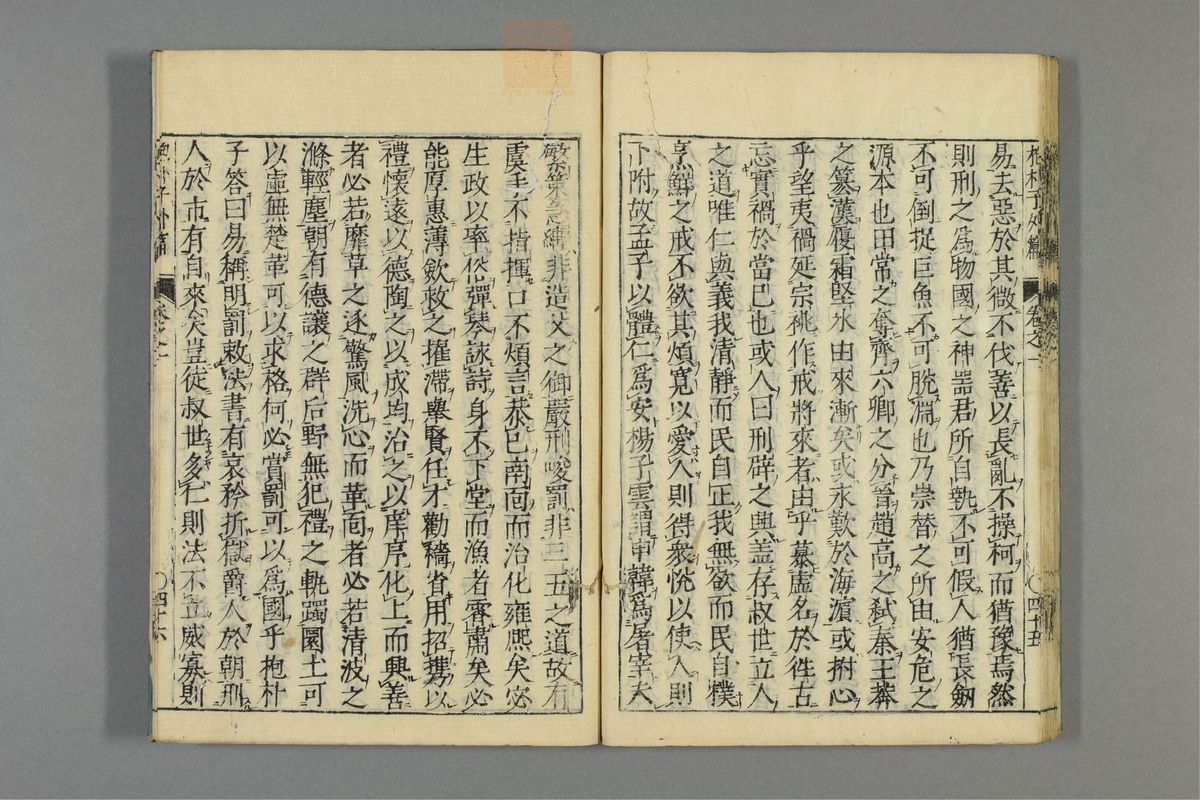 抱朴子外篇 卷之一 ○四十五
易去惡於其微不伐善以長亂不操柯而猶豫焉然
則刑之爲物國之神器君所自執不可假人猶長劒
不可倒捉巨魚不可脫淵也乃崇替之所由安危之
源本也田常之奪齊六卿之分晉趙高之弑秦王莽
之篡漢履霜堅氷由來漸矣或永歎於海濵或拊心
乎望夷禍延宗祧作戒將來者由乎慕虚名於徃古
忘實禍於當己也或人曰刑辟之興盖存叔世立人
之道唯仁與義我清靜而民自正我無欲而民自樸
烹鮮之戒不欲其煩寛以愛人則得衆恱以使人則
下附故孟子以體仁爲安楊子雲謂申韓爲屠宰夫
繁策急轡非造父之御嚴刑峻罰非三五之道故有
虞手不指揮口不煩言恭己南面而治化雍熙矣宓
生政以率俗彈琴詠詩身不下堂而漁者宵肅矣必
能厚惠薄歛救乏擢滯舉賢任才勸穡省用招携以
禮懷遠以德陶之以成均治之以庠序化上而興善
者必若靡草之逐驚風洗心而革面者必若清波之
滌輕塵朝有德讓之群后野無犯禮之軌躅圜土可
以虚無楚革可以求格何必賞罰可以爲國乎抱朴
子答曰易稱明罰敕法書有哀矜折獄爵人於朝刑
人於市有自來矣豈徒叔世多仁則法不立威寡則
抱朴子外篇 卷之一 ○四十六